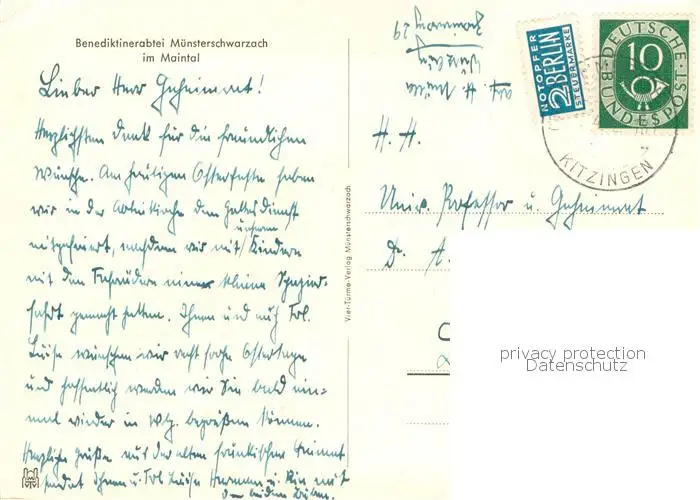 Benediktinerabtei Münsterschwarzach
im Maintal
Lieber Herr Geheimrat!
Herzlichsten Dank für die freundlichen
Wünsche. Am heutigen Osterfeste haben
wir in der Abteikirche den Gottesdienst
mitgefeiert, nachdem wir mit unseren Kindern
mit den Fahrrädern eine kleine Spazier-
fahrt gemacht hatten. Ihnen und auch Frl.
Luise wünschen wir recht frohe Ostertage
und hoffentlich werden wir Sie bald ein-
mal wieder in Wbg. begrüßen können.
Herzliche Grüße aus der alten fränkischen Heimat
sendet Ihnen u. Frl Luise Hermann u. mit
den beiden Buben.
Vier-Türme-Verlag Münsterschwarzach
abs. H. Müller
Würzburg
29
NOTOPFER
2 BERLIN
STEUERMARKE
DEUTSCHE BUNDESPOST
10
KITZINGEN
H. H.
Univ. Professor u. Geheimrat
Dr. A.
privacy protection
Datenschutz